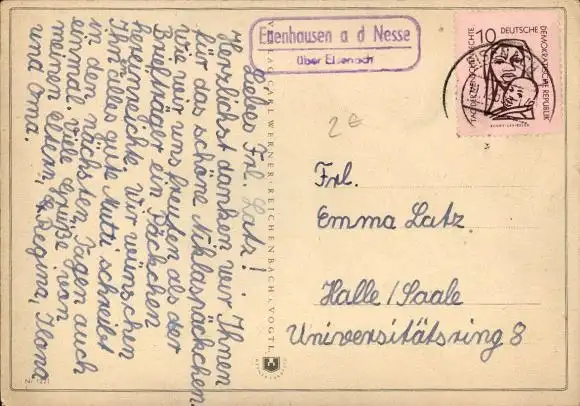 Liebes Frl. Latz!
Herzlichst danken wir Ihnen
für das schöne Niklaspäckchen.
Wie wir uns freuten als der
Briefträger ein Päckchen
hereinreichte. Wir wünschen
Ihn alles gute Mutti schreibt
in den nächsten Tagen auch
einmal. Viele Grüße von
meinen Eltern, Regina, Ilona
und Oma.
Nr 1221
VERLAG CARL WERNER, REICHENBACH I. VOGTL.
Ettenhausen a d Nesse
über Eisenach
10
DEUTSCHE
DEMOKRATISCHE REPUBLIK
TAG DER MENSCHENRECHTE
2 €
Frl.
Emma Latz
Halle/Saale
Universitätsring 8